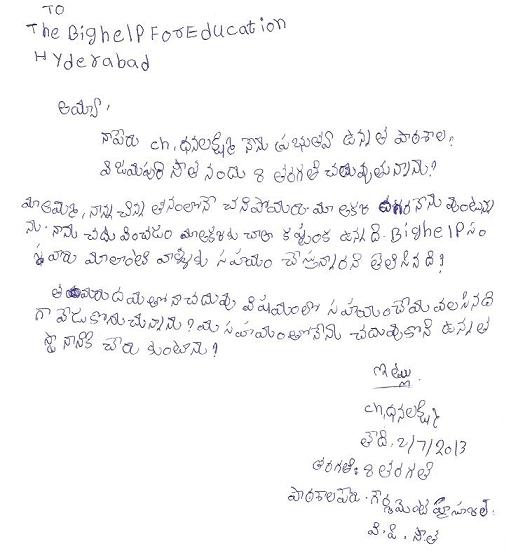 TO
The BighelP For Education
Hyderabad
అయ్యా,
నాపేరు ch, ధనలక్ష్మి నేను ప్రభుత్వ ఉన్నత పాఠశాల?
విజయపురి సౌత్ నందు 8 తరగతి చదువుతున్నాను?
మా అమ్మ, నాన్న చిన్న తనంలోనే చనిపోయారు మా అక్కల దగ్గర నేను వుంటున్న
ను. నాను చదివించడం మా అక్కలకు చాలా కష్టంగా ఉన్నది. BighelP సం
స్థ వారు మాలాంటి వాళ్ళకు సహాయం చేస్తున్నారని తెలిసినది?
దయతో నా చదువు విషయంలో సహాయం చేయ వలసినది
గా వేడుకొనుచున్నాను? మీ సహాయంతో నేను చదువుకొని ఉన్నత
స్థానానికి చేరు కుంటాను?
ఇట్లు
ch, ధనలక్ష్మి
తేది, 2/7/2013
తరగతి: 8 తరగతి
పాఠశాల పేరు. గవర్నమెంట్ హైస్కూల్.
వి. పి. సౌత్